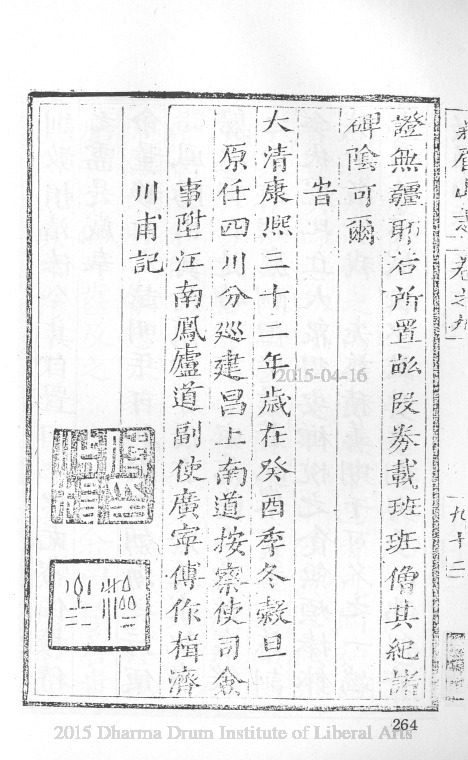 眉山志 卷之九
九十二
證無疆耶若所置畝段券載班班僧其紀諸
碑陰可爾
旹
大清康熈三十二年歲在癸酉季冬穀旦
原任四川分廵建昌上南道按察使司僉
事陞江南鳳廬道副使廣寧傅作楫濟
川甫記
2015-04-16
264
2015 Dharma Drum Institute of Liberal Arts